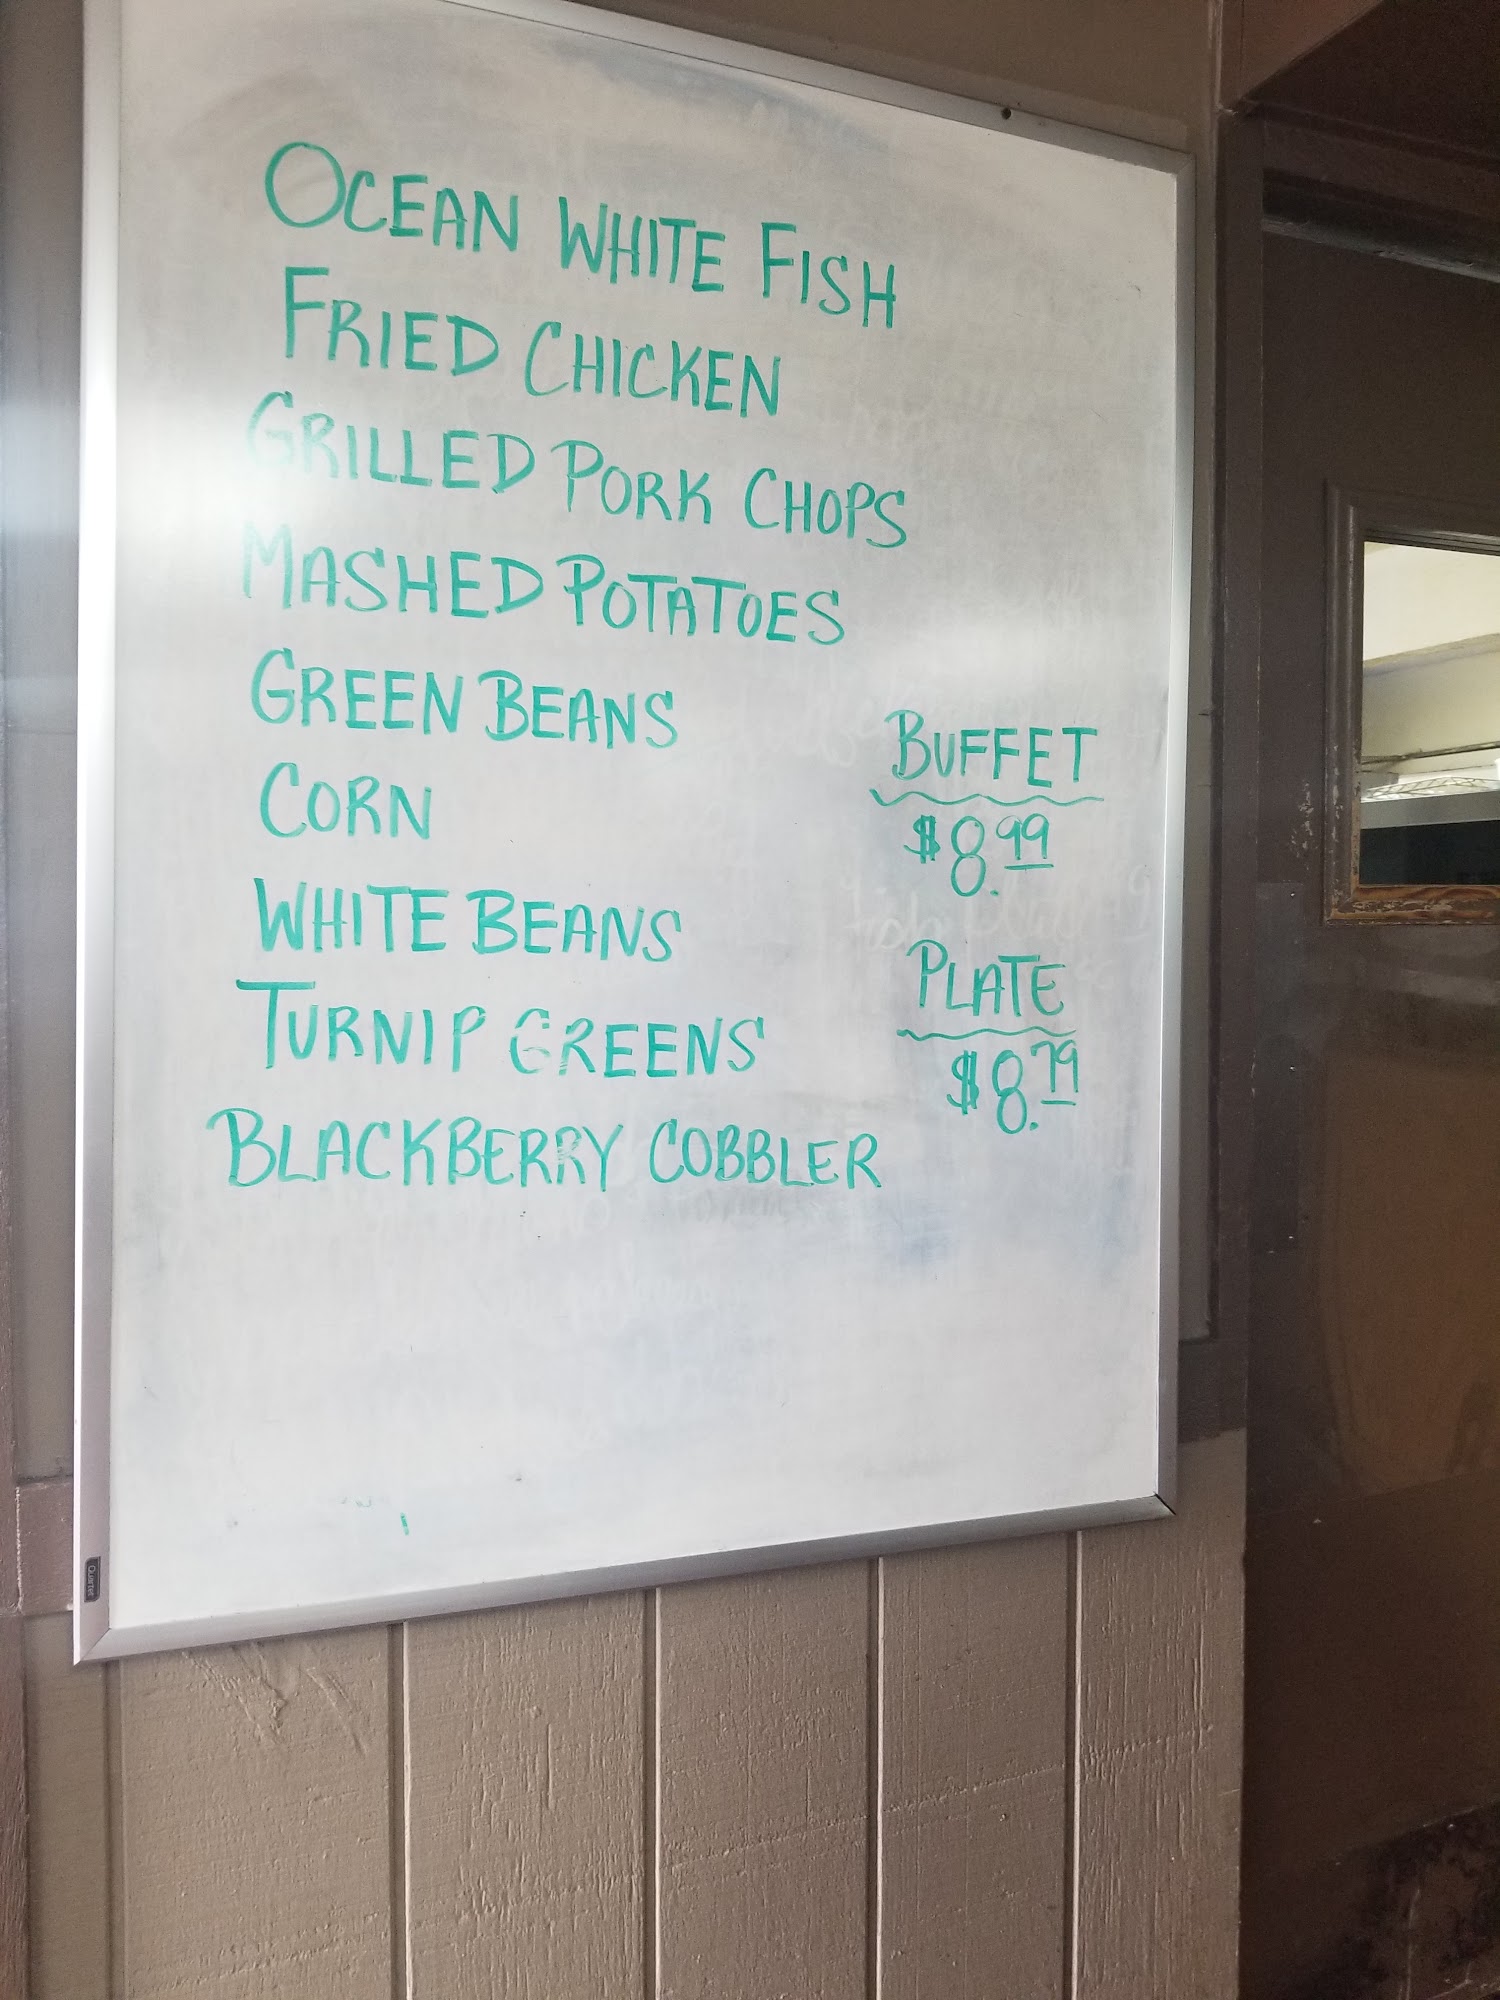 OCEAN WHITE FISH
FRIED CHICKEN
GRILLED PORK CHOPS
MASHED POTATOES
GREEN BEANS
CORN
WHITE BEANS
TURNIP GREENS
BLACKBERRY COBBLER
BUFFET
$8.99
PLATE
$8.79
Quartet